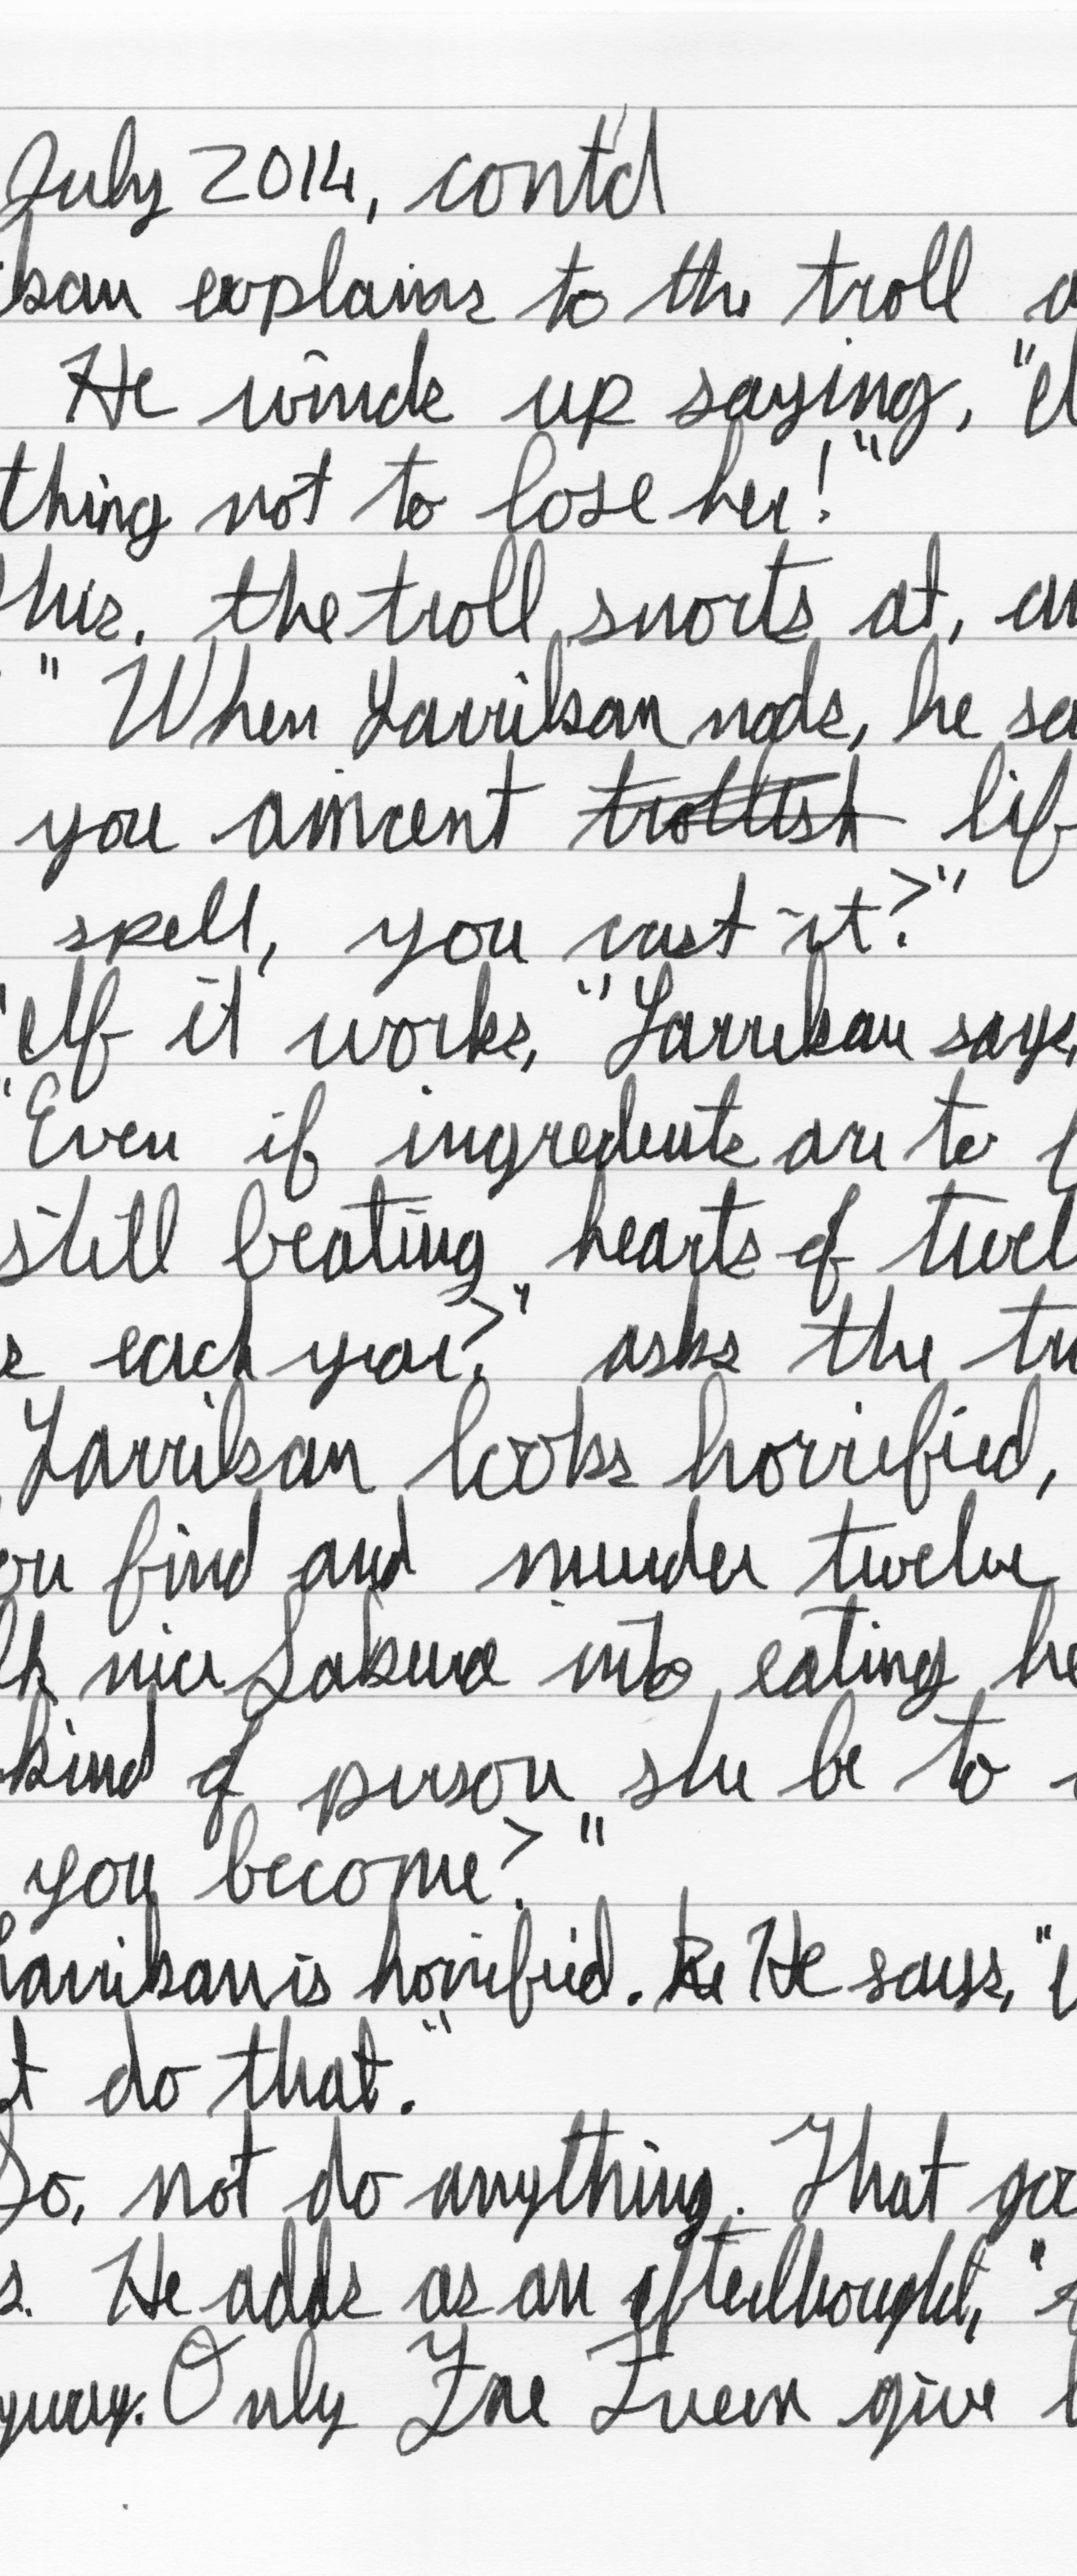 July 2014, cont'd
ikan explains to the troll a
He winds up saying, "I
thing not to lose her!"
this, the troll snorts at, an
" When Larrikan nods, he sa
you ancient trollish lif
spell, you cast it?"
"If it works," Larrikan says,
"Even if ingredients are to
still beating hearts of twel
s each year?" asks the tr
Larrikan looks horrified,
ou find and murder twelve
lk nice Sakura into eating he
kind of person she be to
you become?"
Larrikan is horrified. He He says, "I
t do that."
So, not do anything. That go
s. He adds as an afterthought, "
yway. Only Fae Queen give